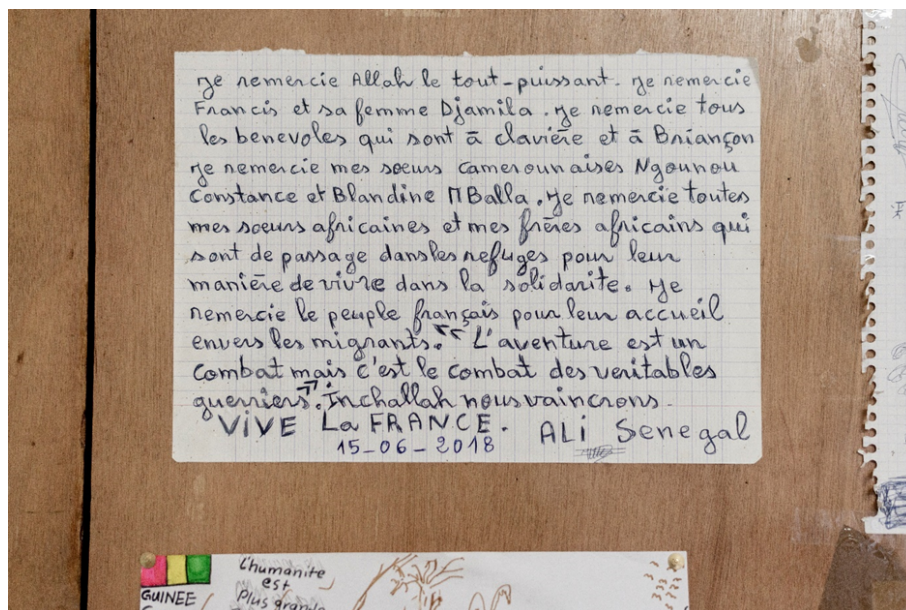 Je remercie Allah le tout-puissant. Je remercie
Francis et sa femme Djamila. Je remercie tous
les benevoles qui sont à clavière et à Briançon
Je remercie mes soeurs camerounaises Ngounou
Constance et Blandine MBalla. Je remercie toutes
mes soeurs africaines et mes frères africains qui
sont de passage dans les refuges pour leur
manière de vivre dans la solidarite. Je
remercie le peuple français pour leur accueil
envers les migrants. « L'aventure est un
combat mais c'est le combat des veritables
guerriers ». Inchallah nous vaincrons.
ViVE La FRANCE. ALi Senegal
15-06-2018
L'humanite
est
GUINEE
Plus grande